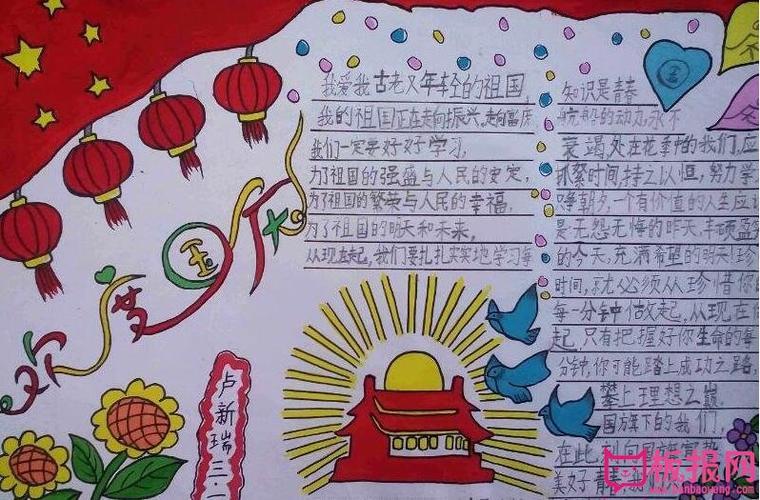 欢度国庆
卢新瑞
我爱我古老又年轻的祖国,
我的祖国正在走向振兴,走向富庶
我们一定要好好学习,
为了祖国的强盛与人民的安定,
为了祖国的繁荣与人民的幸福,
为了祖国的明天和未来,
从现在起,我们要扎扎实实地学习每
知识是青春
的动力,永不
衰竭,处在花季中的我们,应
抓紧时间,持之以恒,努力学
一个有价值的人生应该
是无怨无悔的昨天,丰硕盈
的今天,充满希望的明天!珍
时间,就必须从珍惜你
每一分钟做起,从现在
起,只有把握好你生命的每
分钟,你可能踏上成功之路,
攀上理想之巅.
国旗下的我们,
在此,到向国
美好青春
板报网
www.banbaowang.com